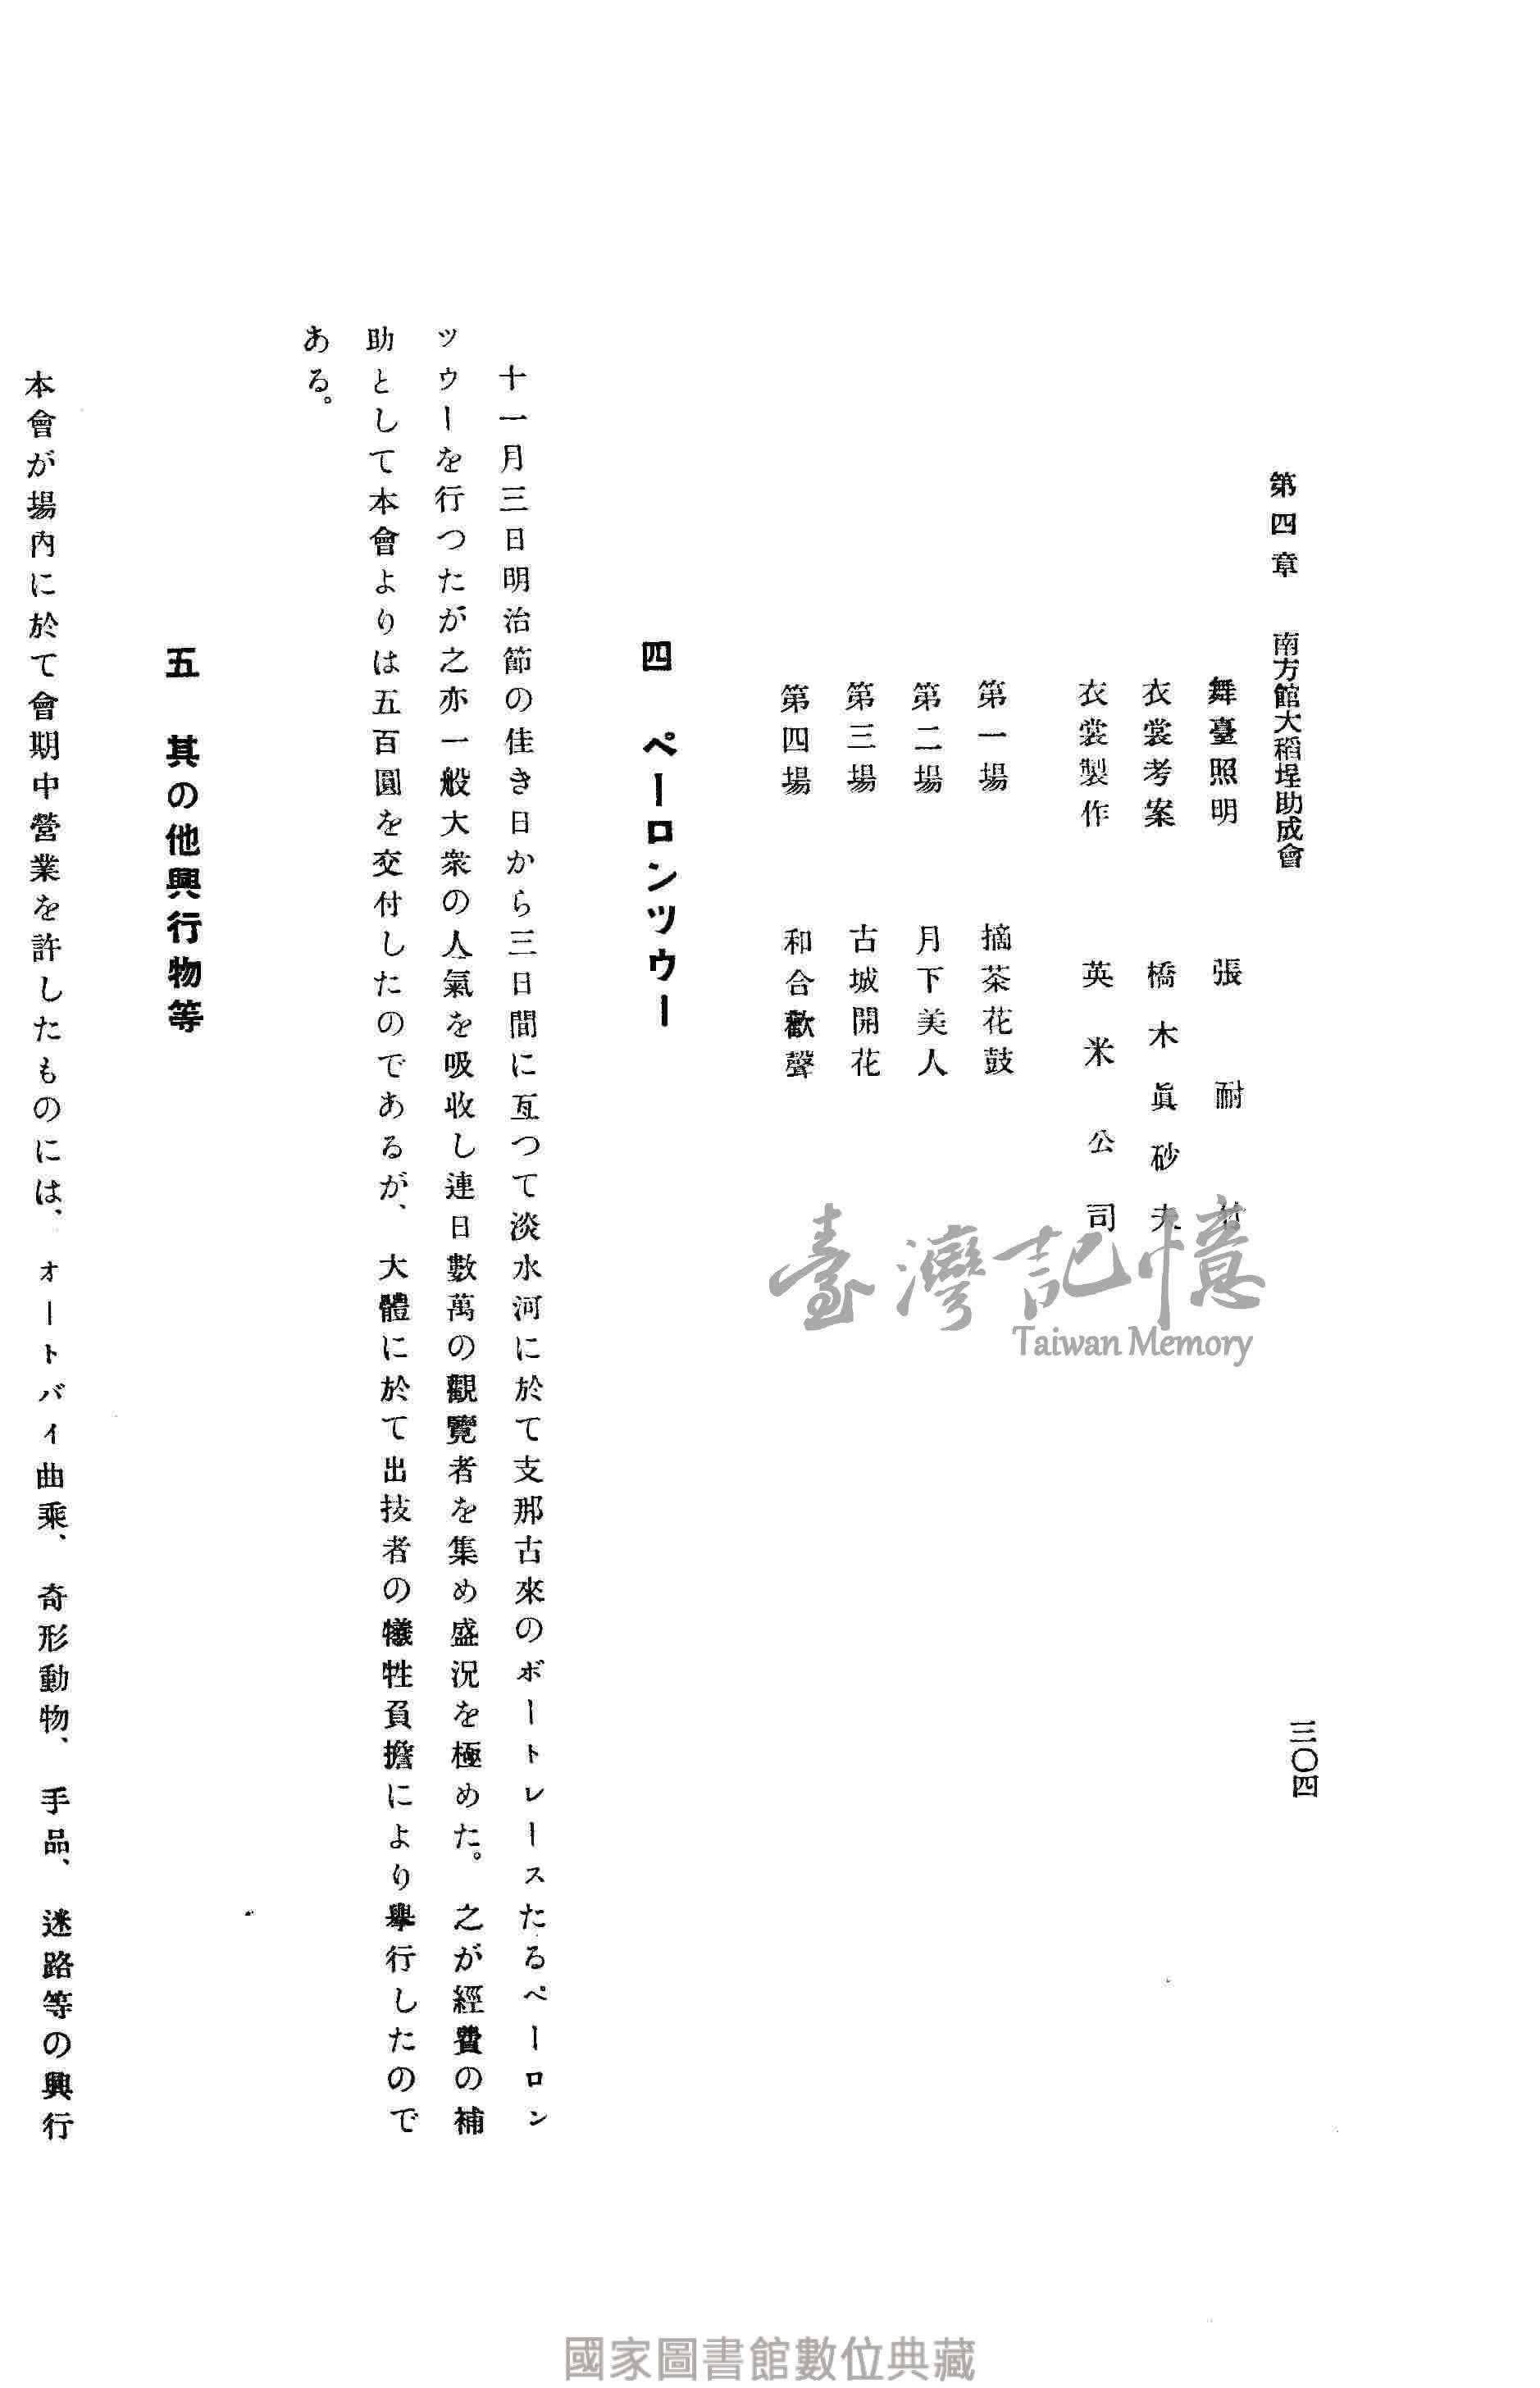 第四章　南方館大稻埕助成會
三〇四
舞臺照明　張耐
衣裳考案　橋木眞砂夫
衣裳製作　英米公司
第一場　摘茶花鼓
第二場　月下美人
第三場　古城開花
第四場　和合歡聲
四　ペーロンツウー
十一月三日明治節の佳き日から三日間に亙つて淡水河に於て支那古來のボートレースたるペーロン
ツウーを行つたが之亦一般大衆の人氣を吸收し連日數萬の觀覽者を集め盛況を極めた。之が經費の補
助として本會よりは五百圓を交付したのであるが、大體に於て出技者の犧牲負擔により擧行したので
ある。
五　其の他興行物等
本會が場內に於て會期中營業を許したものには、オートバイ曲乘、奇形動物、手品、迷路等の興行
臺灣記憶
Taiwan Memory
國家圖書館數位典藏